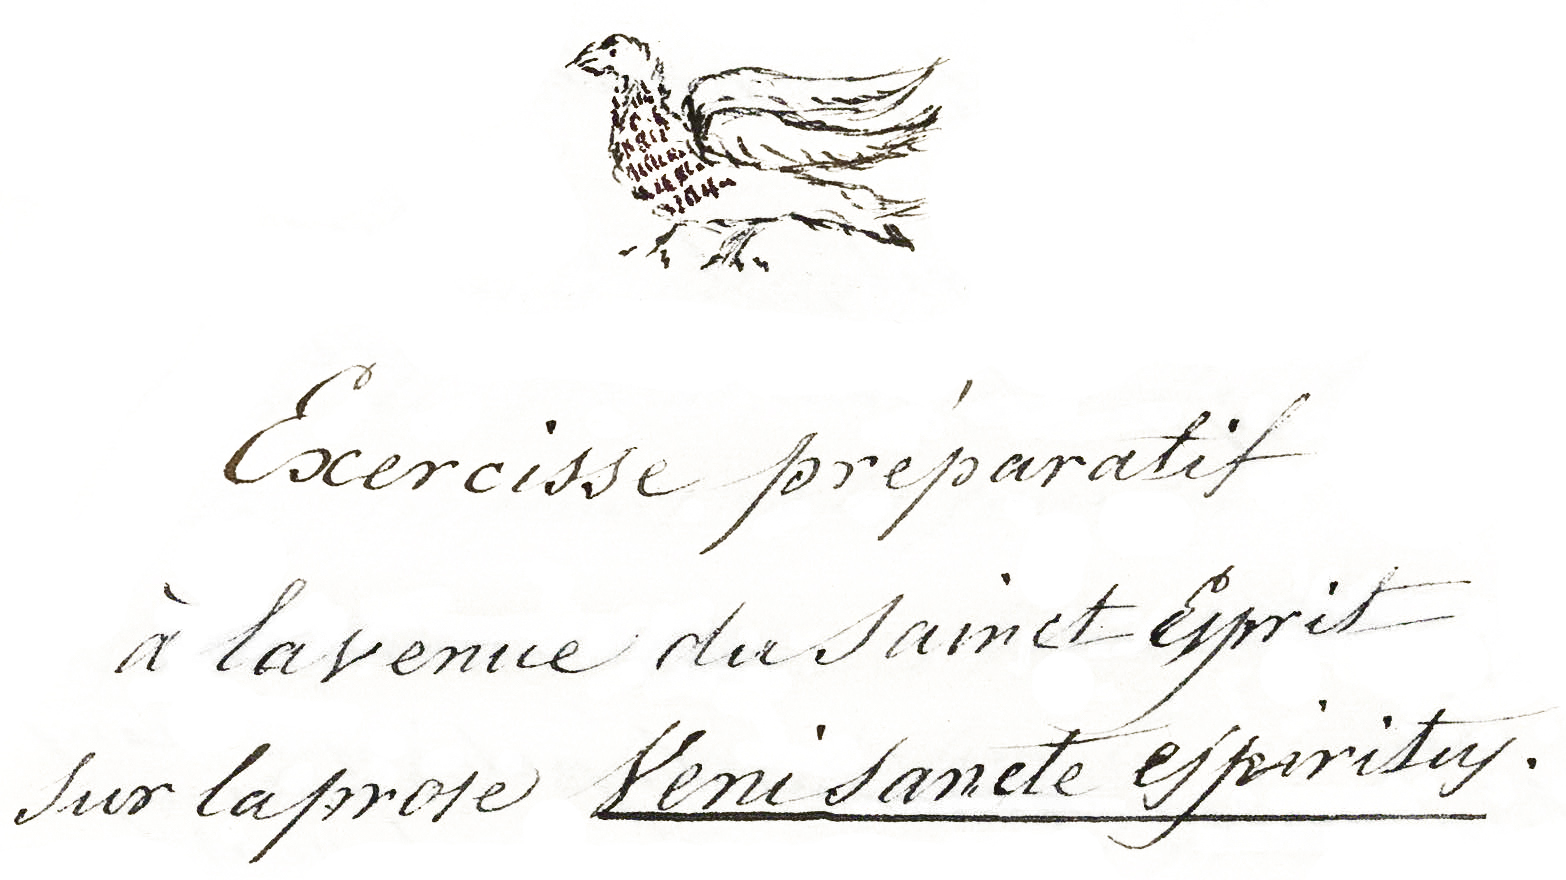 Exercisse préparatif
à la venue du sainct Esprit
sur la prose Veni sancte espiritus.